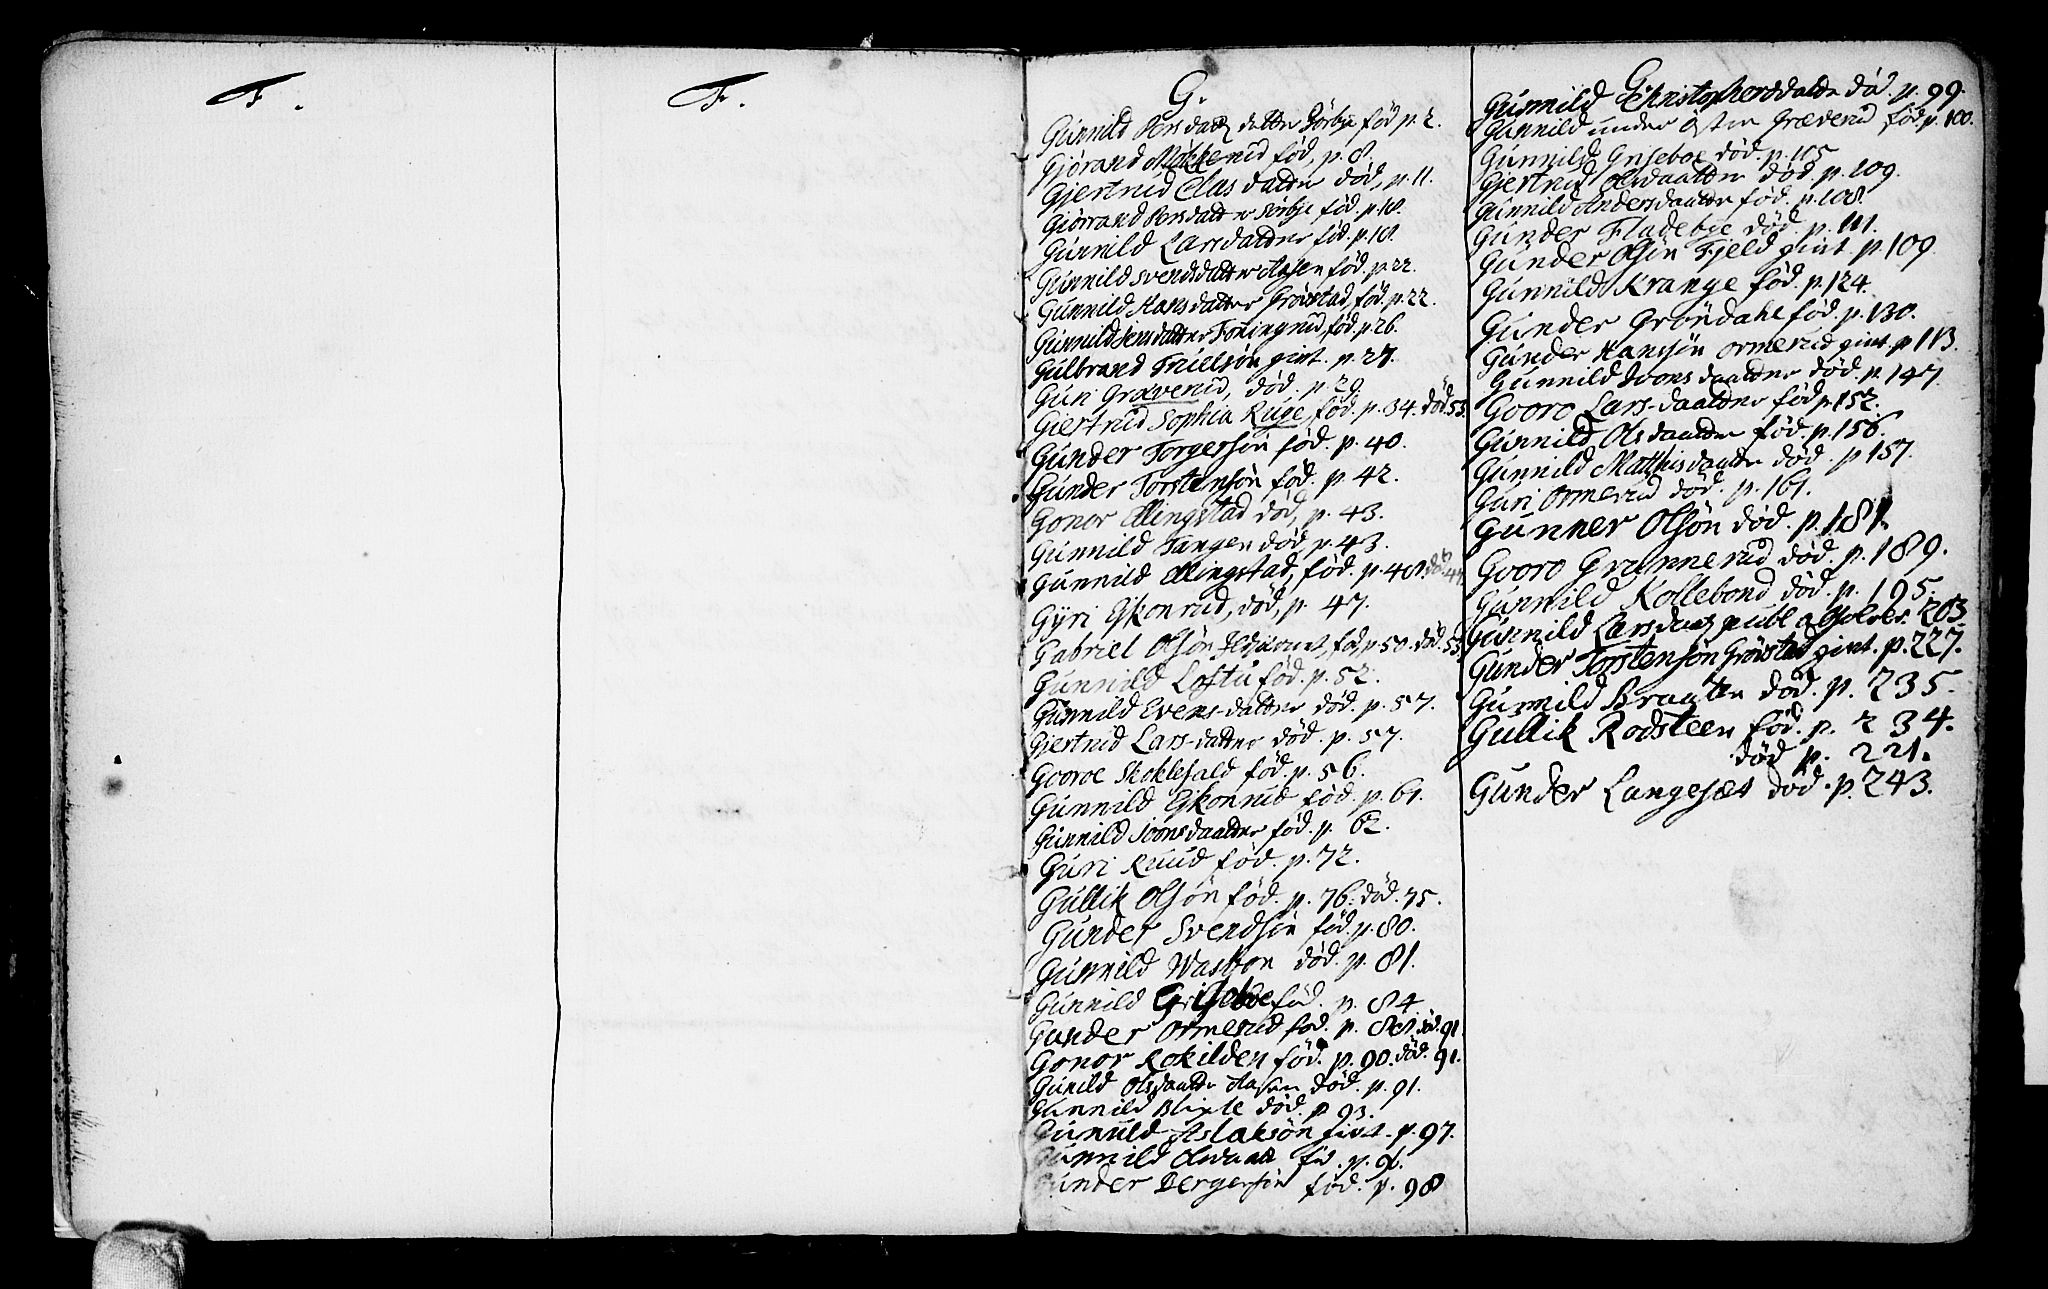 F.
F.
G.
Gunnild Persdatt datter Sörbye fød p. 2.
Gjörand Mökkerud fød, p. 8.
Gjertrud Clasdatter død, p. 11.
Gjörrand Persdatter Sörbye fød. p. 18.
Gunnild Larsdatter fød. p. 18.
Gunnild Svendsdatter Aasen fød. p. 22.
Gunnild Hansdatter Grövstad fød. p. 22.
Gunnild Jensdatter fød. p. 26.
Gulbrand Trulssön givt. p. 27.
Guri Grævenud, død. p. 29.
Giertrud Sophia Ruge, fød. p. 34. død 53.
Gunder Torgersön fød. p. 40.
Gunder Torstensön fød. p 42.
Gonor Ellingstad død, p. 43.
Gunnild Tangen død p. 43.
Gunnild Ellingstad, fød. p. 48. død 44.
Gyri Ejkonrud, død, p. 47.
Gabriel Olsön fød, p. 50. død. 53.
Gunnild Loftu fød. p. 52.
Gunnild Evens-datter død. p. 57.
Gjertrud Lars-datter død. p. 57.
Gooroe Skoklefald fød. p. 56.
Gunnild Ejkonrud fød. p. 61.
Gunnild Joensdaatter fød. p. 62.
Guri Ruud fød. p. 72.
Gullik Olsön fød. p. 76. død. 75.
Gunder Svendsön fød. p. 80.
Gunnild Waskon død. p. 81.
Gunnild Griseboe fød. p. 84
Gunder Ormerud fød. p. 88. død. 91
Gonor Rokilden fød. p. 90. død. 91.
Gunild Olsdaatter Aasen død. p. 91.
Gunnild Blixle død. p 93.
Gunuld Aslaksön givt. p. 97.
Gunnild Olsdaatt fød. p. 96.
Gunder Bergersön fød. p. 98
G
Gunnild Christophersdatter død. p. 99.
Gunnild under Østre Græverud fød. p. 100.
Gunnild Griseboe død. p. 115
Gjertrud Olsdaatter død p. 109.
Gunnild Andersdaatter fød. p. 108.
Gunder Fladebye død. p. 111.
Gunder Olsön Fjeld givt p. 109.
Gunnild Krange fød. p. 124.
Gunder Gröndahl fød. p. 130.
Gunder Hanssön Ormerud givt. p 113.
Gunnild Joensdaatter død. p. 147.
Gooro Lars-daatter fød p. 152.
Gunnild Olsdaatter fød. p. 156.
Gunnild Matthisdaatter død. p 157.
Guri Ormerud død. p. 161.
Gunner Olsön død. p. 181.
Gooro Grannerud død. p. 189.
Gunnild Kollebond død. p. 195.
Gunnild Larsdaatt publ. absolv. 203.
Gunder Torstensön Grövstad givt. p. 227.
Gunnild Braaten død. p. 235.
Gullik Rodsteen fød. p. 234.
død p. 221.
Gunder Langesæt død. p. 243.